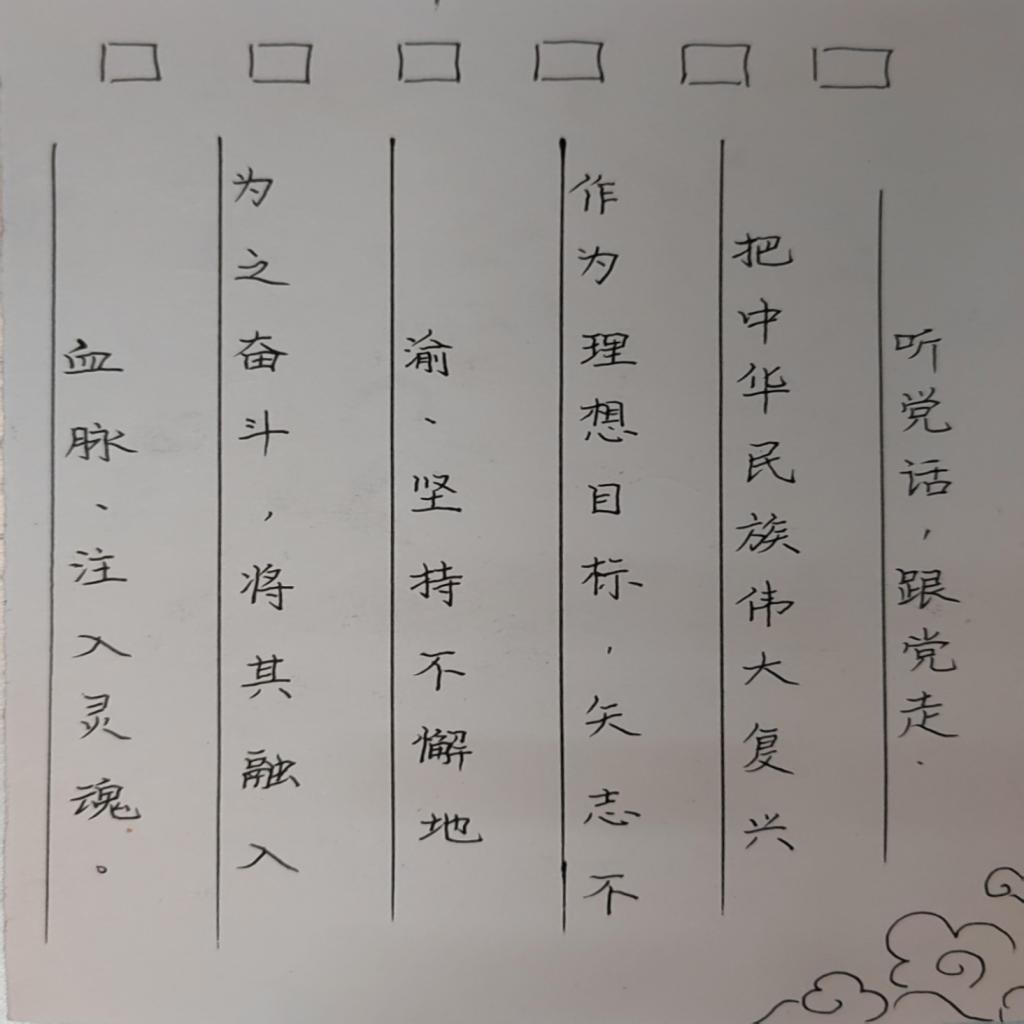 听党话，跟党走.
把中华民族伟大复兴
作为理想目标，矢志不
渝、坚持不懈地
为之奋斗，将其融入
血脉、注入灵魂。